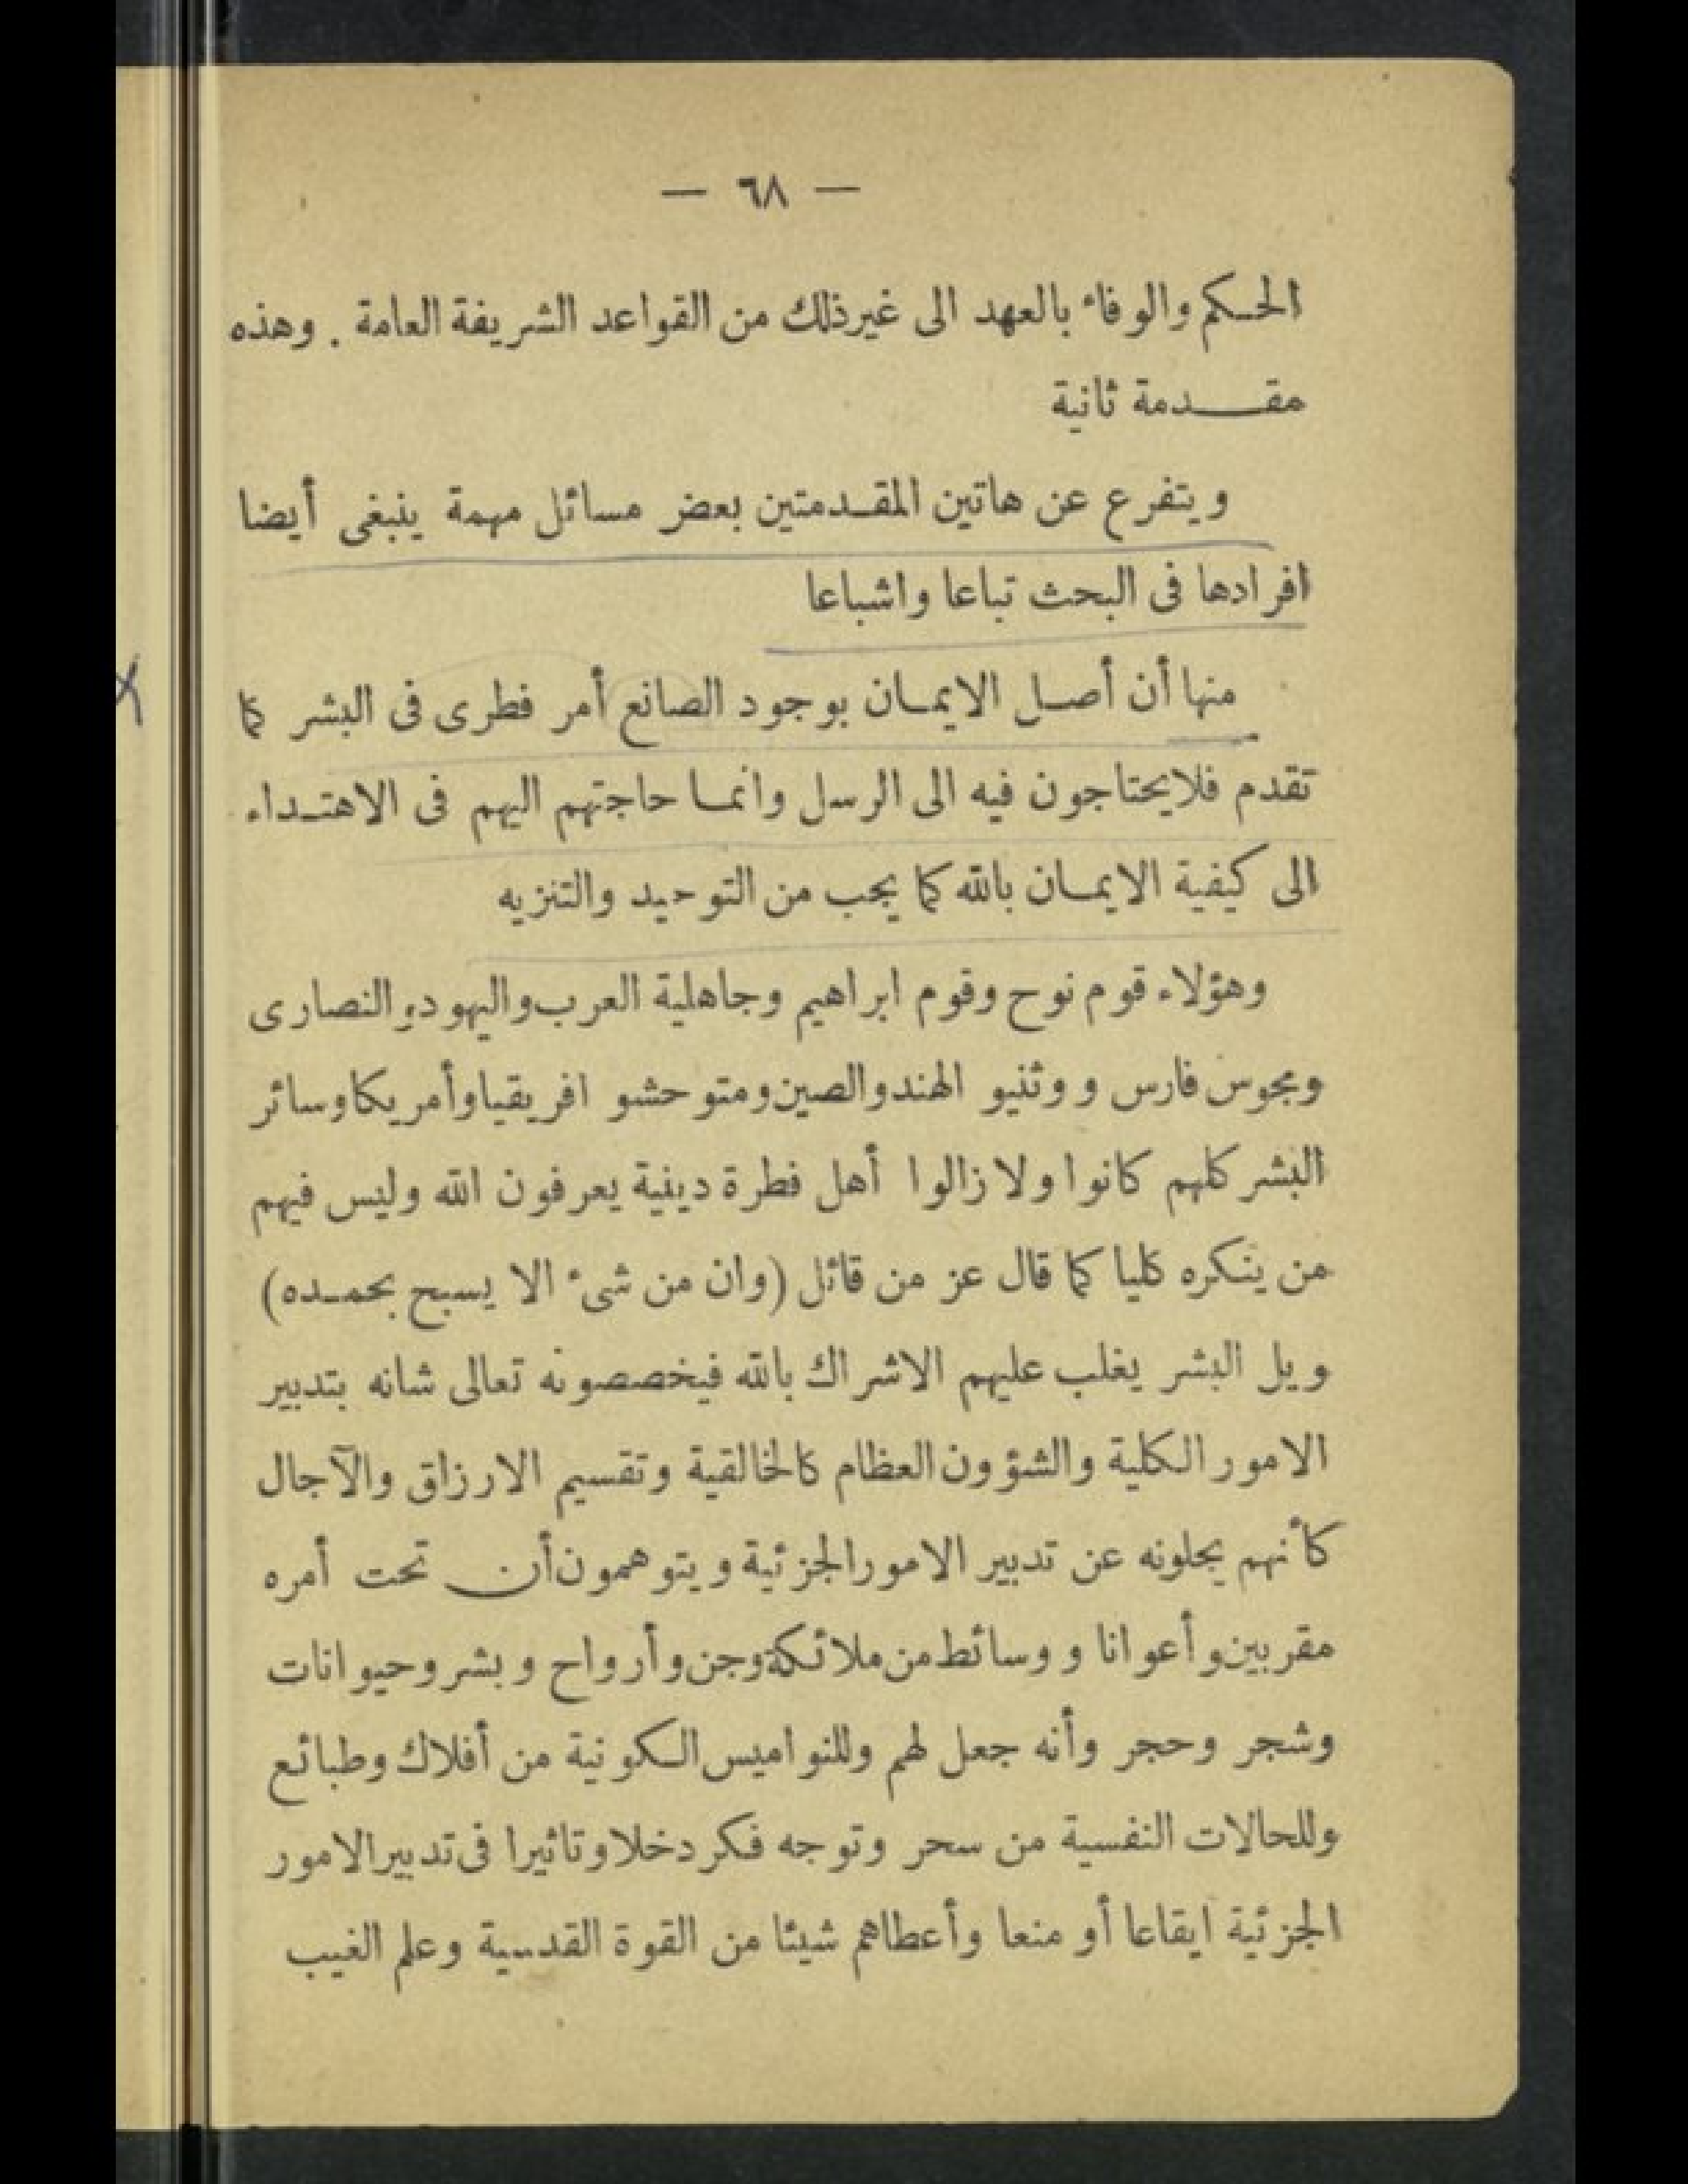 — ٦٨ —
الحكم والوفاء بالعهد الى غير ذلك من القواعد الشريفة العامة . وهذه
مقدمة ثانية
ويتفرع عن هاتين المقدمتين بعض مسائل مهمة ينبغى أيضا
افرادها فى البحث تباعا واشباعا
منها أن أصل الايمان بوجود الصانع أمر فطرى فى البشر كما
تقدم فلا يحتاجون فيه الى الرسل وانما حاجتهم اليهم فى الاهتداء
الى كيفية الايمان بالله كما يجب من التوحيد والتنزيه
وهؤلاء قوم نوح وقوم ابراهيم وجاهلية العرب واليهود والنصارى
ومجوس فارس و وثنيو الهند والصين ومتوحشو افريقيا وأمريكا وسائر
البشر كلهم كانوا ولا زالوا أهل فطرة دينية يعرفون الله وليس فيهم
من ينكره كليا كما قال عز من قائل (وان من شئ الا يسبح بحمده)
ويل البشر يغلب عليهم الاشراك بالله فيخصصونه تعالى شانه بتدبير
الامور الكلية والشؤون العظام كالخالقية وتقسيم الارزاق والآجال
كأنهم يجلونه عن تدبير الامور الجزئية ويتوهمون أن تحت أمره
مقربين وأعوانا و وسائط من ملائكة وجن وأرواح وبشر وحيوانات
وشجر وحجر وأنه جعل لهم وللنواميس الكونية من أفلاك وطبائع
وللحالات النفسية من سحر وتوجه فكر دخلا وتاثيرا فى تدبير الامور
الجزئية ايقاعا أو منعا وأعطاهم شيئا من القوة القدسية وعلم الغيب